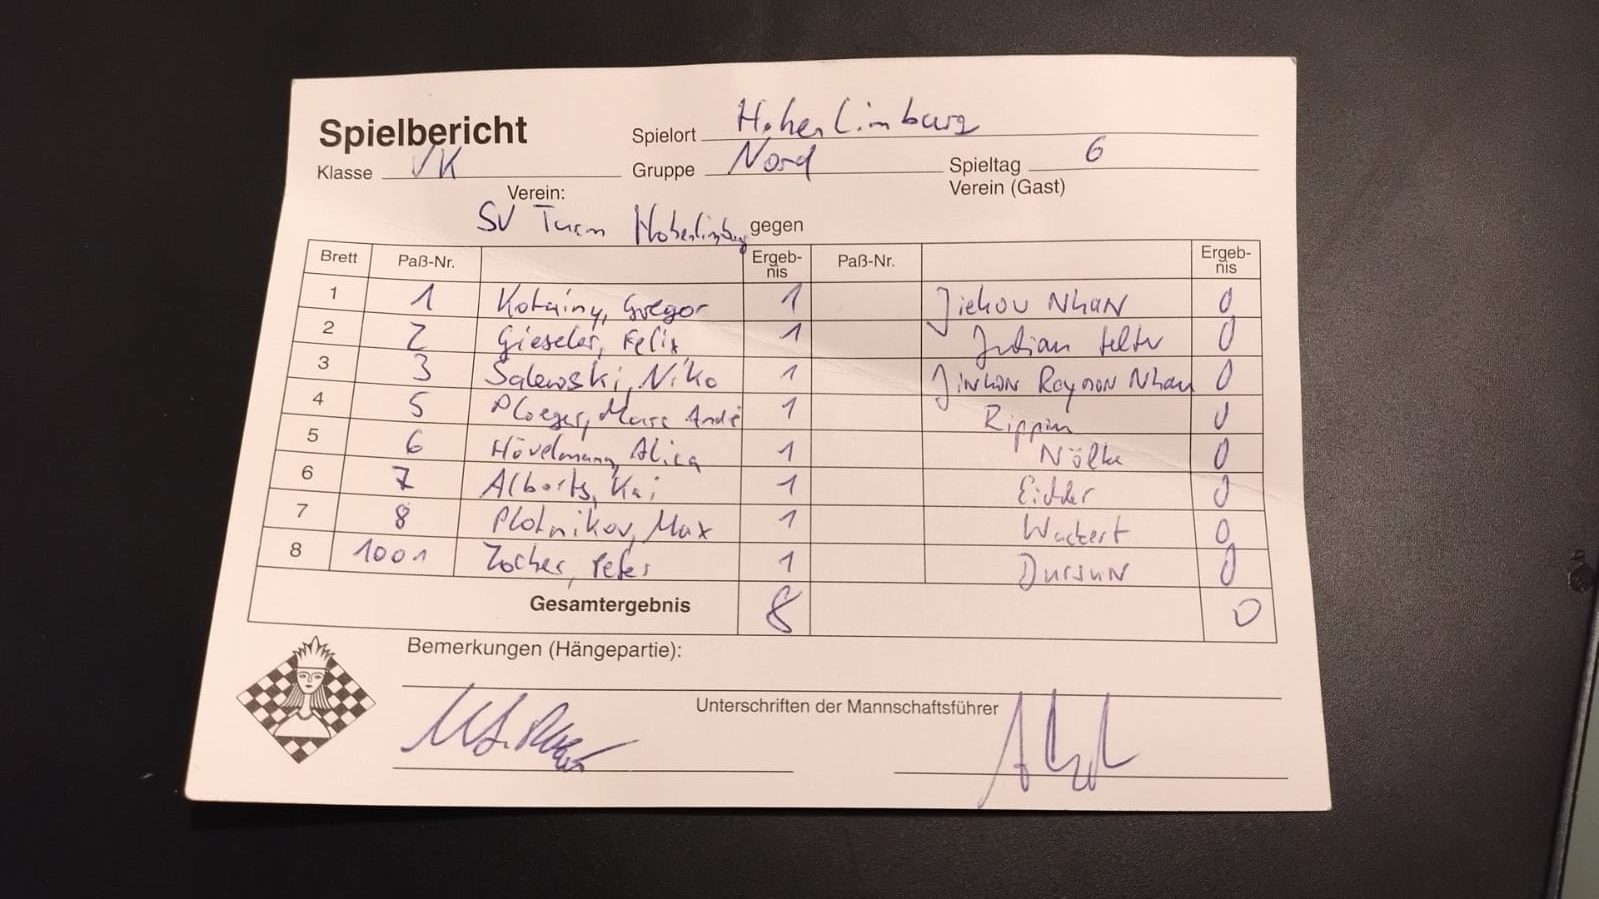 Spielbericht Spielort Hohenlimburg
Klasse VK Gruppe Nord Spieltag 6
Verein: Verein (Gast)
SV Turm Hohenlimburg gegen
Brett Paß-Nr. Ergeb-nis Paß-Nr. Ergeb-nis
1 1 Kotainy, Gregor 1 Jiehou Nhan 0
2 2 Gieseler, Felix 1 Julian 0
3 3 Salewski, Niko 1 Jinhon Raymon Nhan 0
4 5 Ploeger, Marc André 1 Rippin 0
5 6 Hövelmann, Alica 1 Nölke 0
6 7 Alberts, Kai 1 0
7 8 Plotnikov, Max 1 Wackert 0
8 1001 Zocher, Peter 1 Dursun 0
Gesamtergebnis 8 0
Bemerkungen (Hängepartie):
Unterschriften der Mannschaftsführer